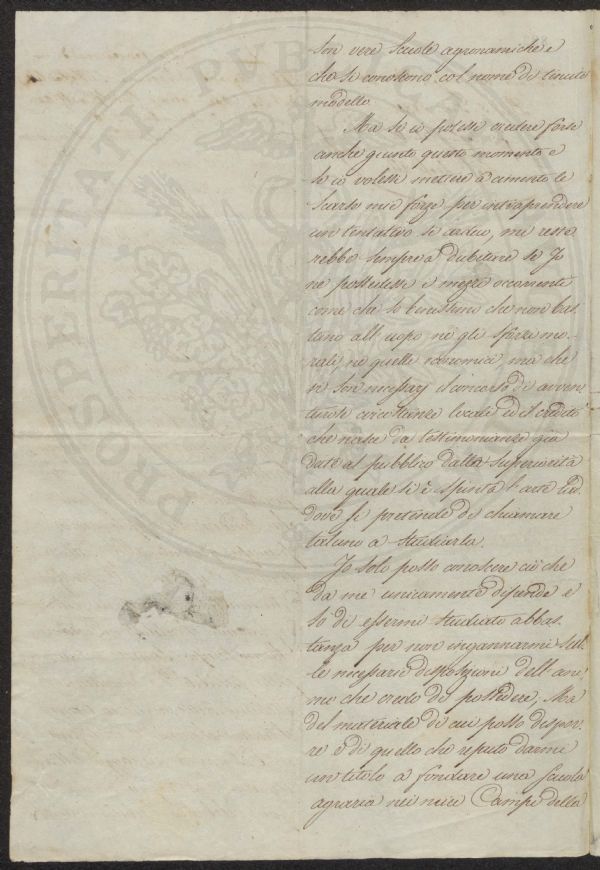 son vere Scuole agronomiche e
che si conoscono col nome di tenute
modello.
Ma se io potessi credere forse
anche giunto questo momento e
se io volessi mettere a cimento le
scarse mie forze per intraprendere
un tentativo sì arduo, mi reste
rebbe sempre a dubitare se Io
ne possedessi i mezzi occorrenti
come che so benissimo che non bas
tano all'uopo nè gli sforzi mo-
rali, nè quelli economici, ma che
vi son necessarj il concorso di avven
turose circostanze locali ed il credito
che nasce da testimonianze già
date al pubblico dalla superiorità
alla quale si è spinta l'arte là
dove si pretende di chiamare
taluno a studiarla.
Io solo posso conoscere ciò che
da me unicamente dipende e
so di essermi studiato abbas
tanza per non ingannarmi sul
le necessarie disposizioni dell'ani
mo che credo di possedere, Ma
del materiale di cui posso dispor
re e di quello che reputo darmi
un titolo a fondare una Scuola
agraria nei miei Campi della
PROSPERITATI PUBLICAE